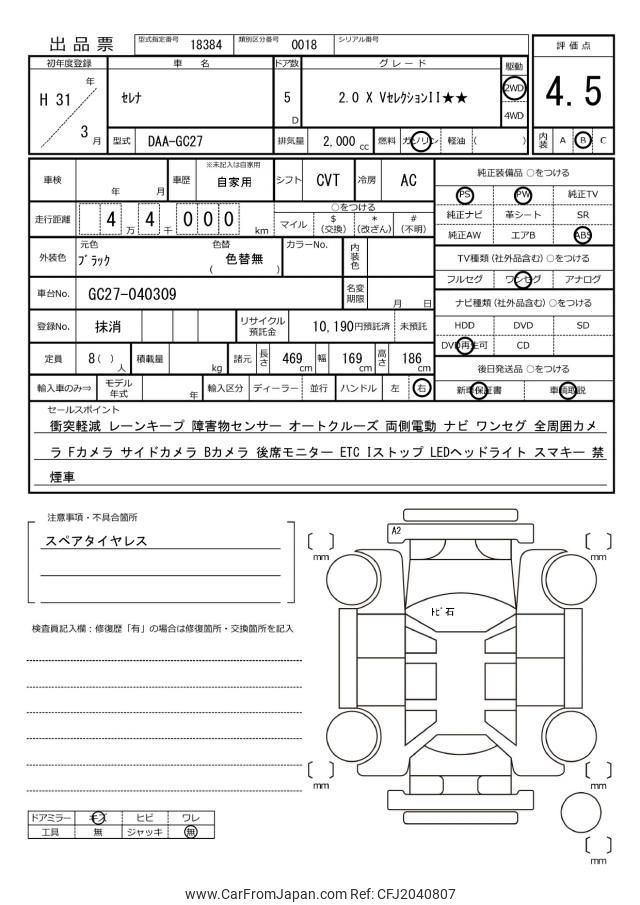 出品票 型式指定番号 18384 類別区分番号 0018 シリアル番号
初年度登録 車名 ドア数 グレード 駆動 評価点
H 31 年 3 月 セレナ 5 D 2.0 X VセレクションII★★ 2WD 4WD 4.5
型式 DAA-GC27 排気量 2,000 cc 燃料 ガソリン 軽油 ( ) 内装 A B C
車検 年 月 車歴 ※未記入は自家用 自家用 シフト CVT 冷房 AC
走行距離 4 万 4 千 0 0 0 km ○をつける
マイル $ (交換) * (改ざん) # (不明)
外装色 元色 ブラック 色替 ( 色替無 ) カラーNo. 内装色
車台No. GC27-040309 名変期限 月 日
登録No. 抹消 リサイクル預託金 10,190円預託済 未預託
定員 8 ( ) 人 積載量 kg 諸元 長さ 469 cm 幅 169 cm 高さ 186 cm
輸入車のみ⇒ モデル年式 年 輸入区分 ディーラー 並行 ハンドル 左 右
純正装備品 ○をつける
PS PW 純正TV
純正ナビ 革シート SR
純正AW エアB ABS
TV種類 (社外品含む) ○をつける
フルセグ ワンセグ アナログ
ナビ種類 (社外品含む) ○をつける
HDD DVD SD
DVD再生可 CD
後日発送品 ○をつける
新車保証書 車輌取説
セールスポイント
衝突軽減 レーンキープ 障害物センサー オートクルーズ 両側電動 ナビ ワンセグ 全周囲カメ
ラ Fカメラ サイドカメラ Bカメラ 後席モニター ETC Iストップ LEDヘッドライト スマキー 禁
煙車
注意事項・不具合箇所
スペアタイヤレス
検査員記入欄：修復歴「有」の場合は修復箇所・交換箇所を記入
A2
トビ石
[ ] mm
[ ] mm
[ ] mm
[ ] mm
[ ] mm
ドアミラー キズ ヒビ ワレ
工具 無 ジャッキ 無
www.CarFromJapan.com Ref: CFJ2040807